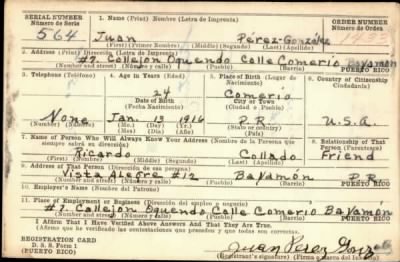 SERIAL NUMBER
Número de Serie
1. Name (Print) Nombre (Letra de Imprenta)
ORDER NUMBER
Número de Orden
564
Juan Pérez-González
(First) (Primer Nombre) (Middle) (Segundo) (Last) (Apellido)
2. Address (Print) Dirección (Letra de Imprenta)
#7. Callejon Oquendo Calle Comerío Bayamon
(Number and street) (Número y calle) (Town) Pueblo PUERTO RICO
3. Telephone (Teléfono)
4. Age in Years (Edad)
5. Place of Birth (Lugar de Nacimiento)
6. Country of Citizenship
Ciudadanía
24
Comerío
Date of Birth
(Fecha Nacimiento)
City or Town
(Ciudad o Pueblo)
None Jan. 13 1916 P.R. U.S.A
(Mo.) (Day) (Yr.)
(Mes) (Día) (Año)
State or country
País
7. Name of Person Who Will Always Know Your Address (Nombre de la Persona que siempre sabrá su dirección)
8. Relationship of That Person (Parentesco)
Ricardo Collado Friend
(First) (Nombre) (Middle) (Segundo) (Last) (Apellido)
9. Address of That Person (Dirección de esa persona)
Vista Alegre #12 Bayamón P.R.
(Number and street) (Número y calle) Pueblo PUERTO RICO
10. Employer's Name (Nombre del Patrono)
11. Place of Employment or Business (Dirección del empleo o negocio)
#7. Callejon Oquendo Calle Comerio Bayamón
(Number and street) (Número y calle) (Town) (Pueblo) PUERTO RICO
I Affirm That I Have Verified Above Answers And That They Are True.
(Afirmo que he verificado las contestaciones que preceden y que todas son correctas.)
REGISTRATION CARD
D. S. S. Form 1
(PUERTO RICO)
Juan Pérez Gonz
(Registrant's signature) (Firma o marca del inscrito)